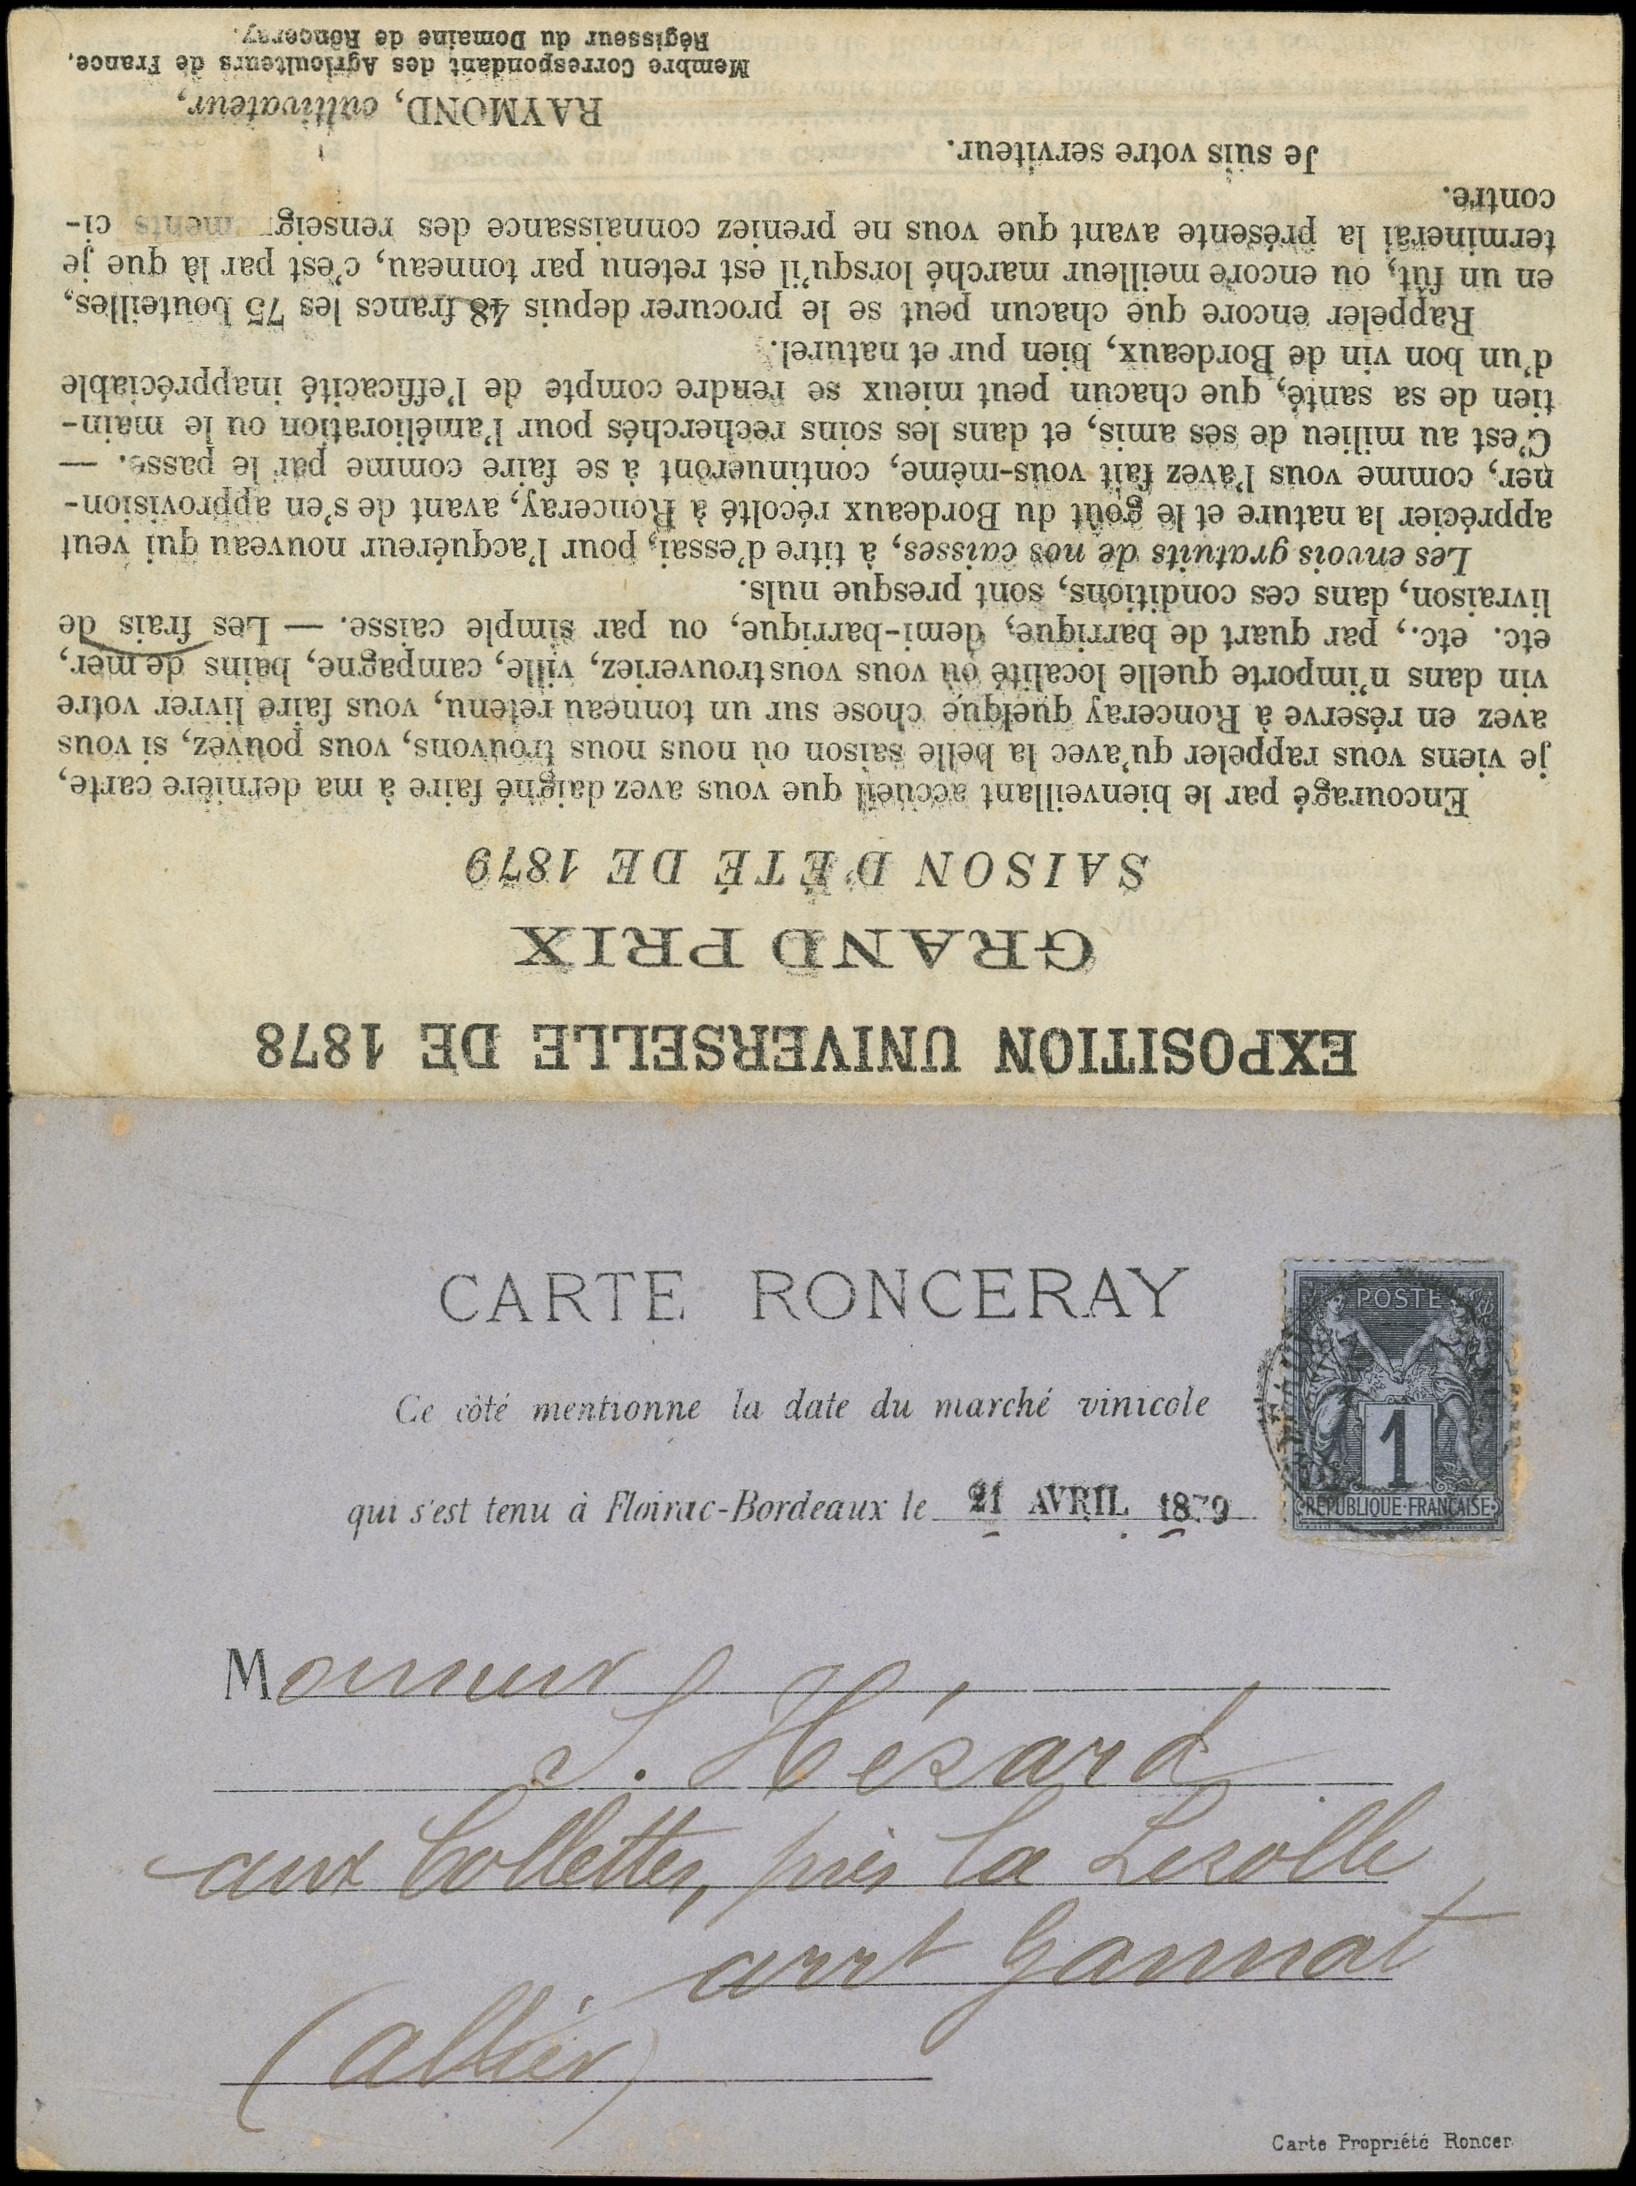 EXPOSITION UNIVERSELLE DE 1878
GRAND PRIX
SAISON D'ÉTÉ DE 1879
Encouragé par le bienveillant accueil que vous avez daigné faire à ma dernière carte,
je viens vous rappeler qu'avec la belle saison où nous nous trouvons, vous pouvez, si vous
avez en réserve à Ronceray quelque chose sur un tonneau retenu, vous faire livrer votre
vin dans n'importe quelle localité où vous vous trouveriez, ville, campagne, bains de mer,
etc. etc., par quart de barrique, demi-barrique, ou par simple caisse. — Les frais de
livraison, dans ces conditions, sont presque nuls.
Les envois gratuits de nos caisses, à titre d'essai, pour l'acquéreur nouveau qui veut
apprécier la nature et le goût du Bordeaux récolté à Ronceray, avant de s'en approvision-
ner, comme vous l'avez fait vous-même, continueront à se faire comme par le passé. —
C'est au milieu de ses amis, et dans les soins recherchés pour l'amélioration ou le main-
tien de sa santé, que chacun peut mieux se rendre compte de l'efficacité inappréciable
d'un bon vin de Bordeaux, bien pur et naturel.
Rappeler encore que chacun peut se le procurer depuis 48 francs les 75 bouteilles,
en un fût, ou encore meilleur marché lorsqu'il est retenu par tonneau, c'est par là que je
terminerai la présente avant que vous ne preniez connaissance des renseig ments ci-
contre.
Je suis votre serviteur.
RAYMOND, cultivateur,
Membre Correspondant des Agriculteurs de France,
Régisseur du Domaine de Ronceray.
CARTE RONCERAY
Ce côté mentionne la date du marché vinicole
qui s'est tenu à Floirac-Bordeaux le 21 AVRIL 1879
POSTE
1
REPUBLIQUE FRANCAISE
Monsieur
S. Hésard
aux Collettes, près la Lizolle
arrt Gannat
(allier)
Carte Propriété Roncer